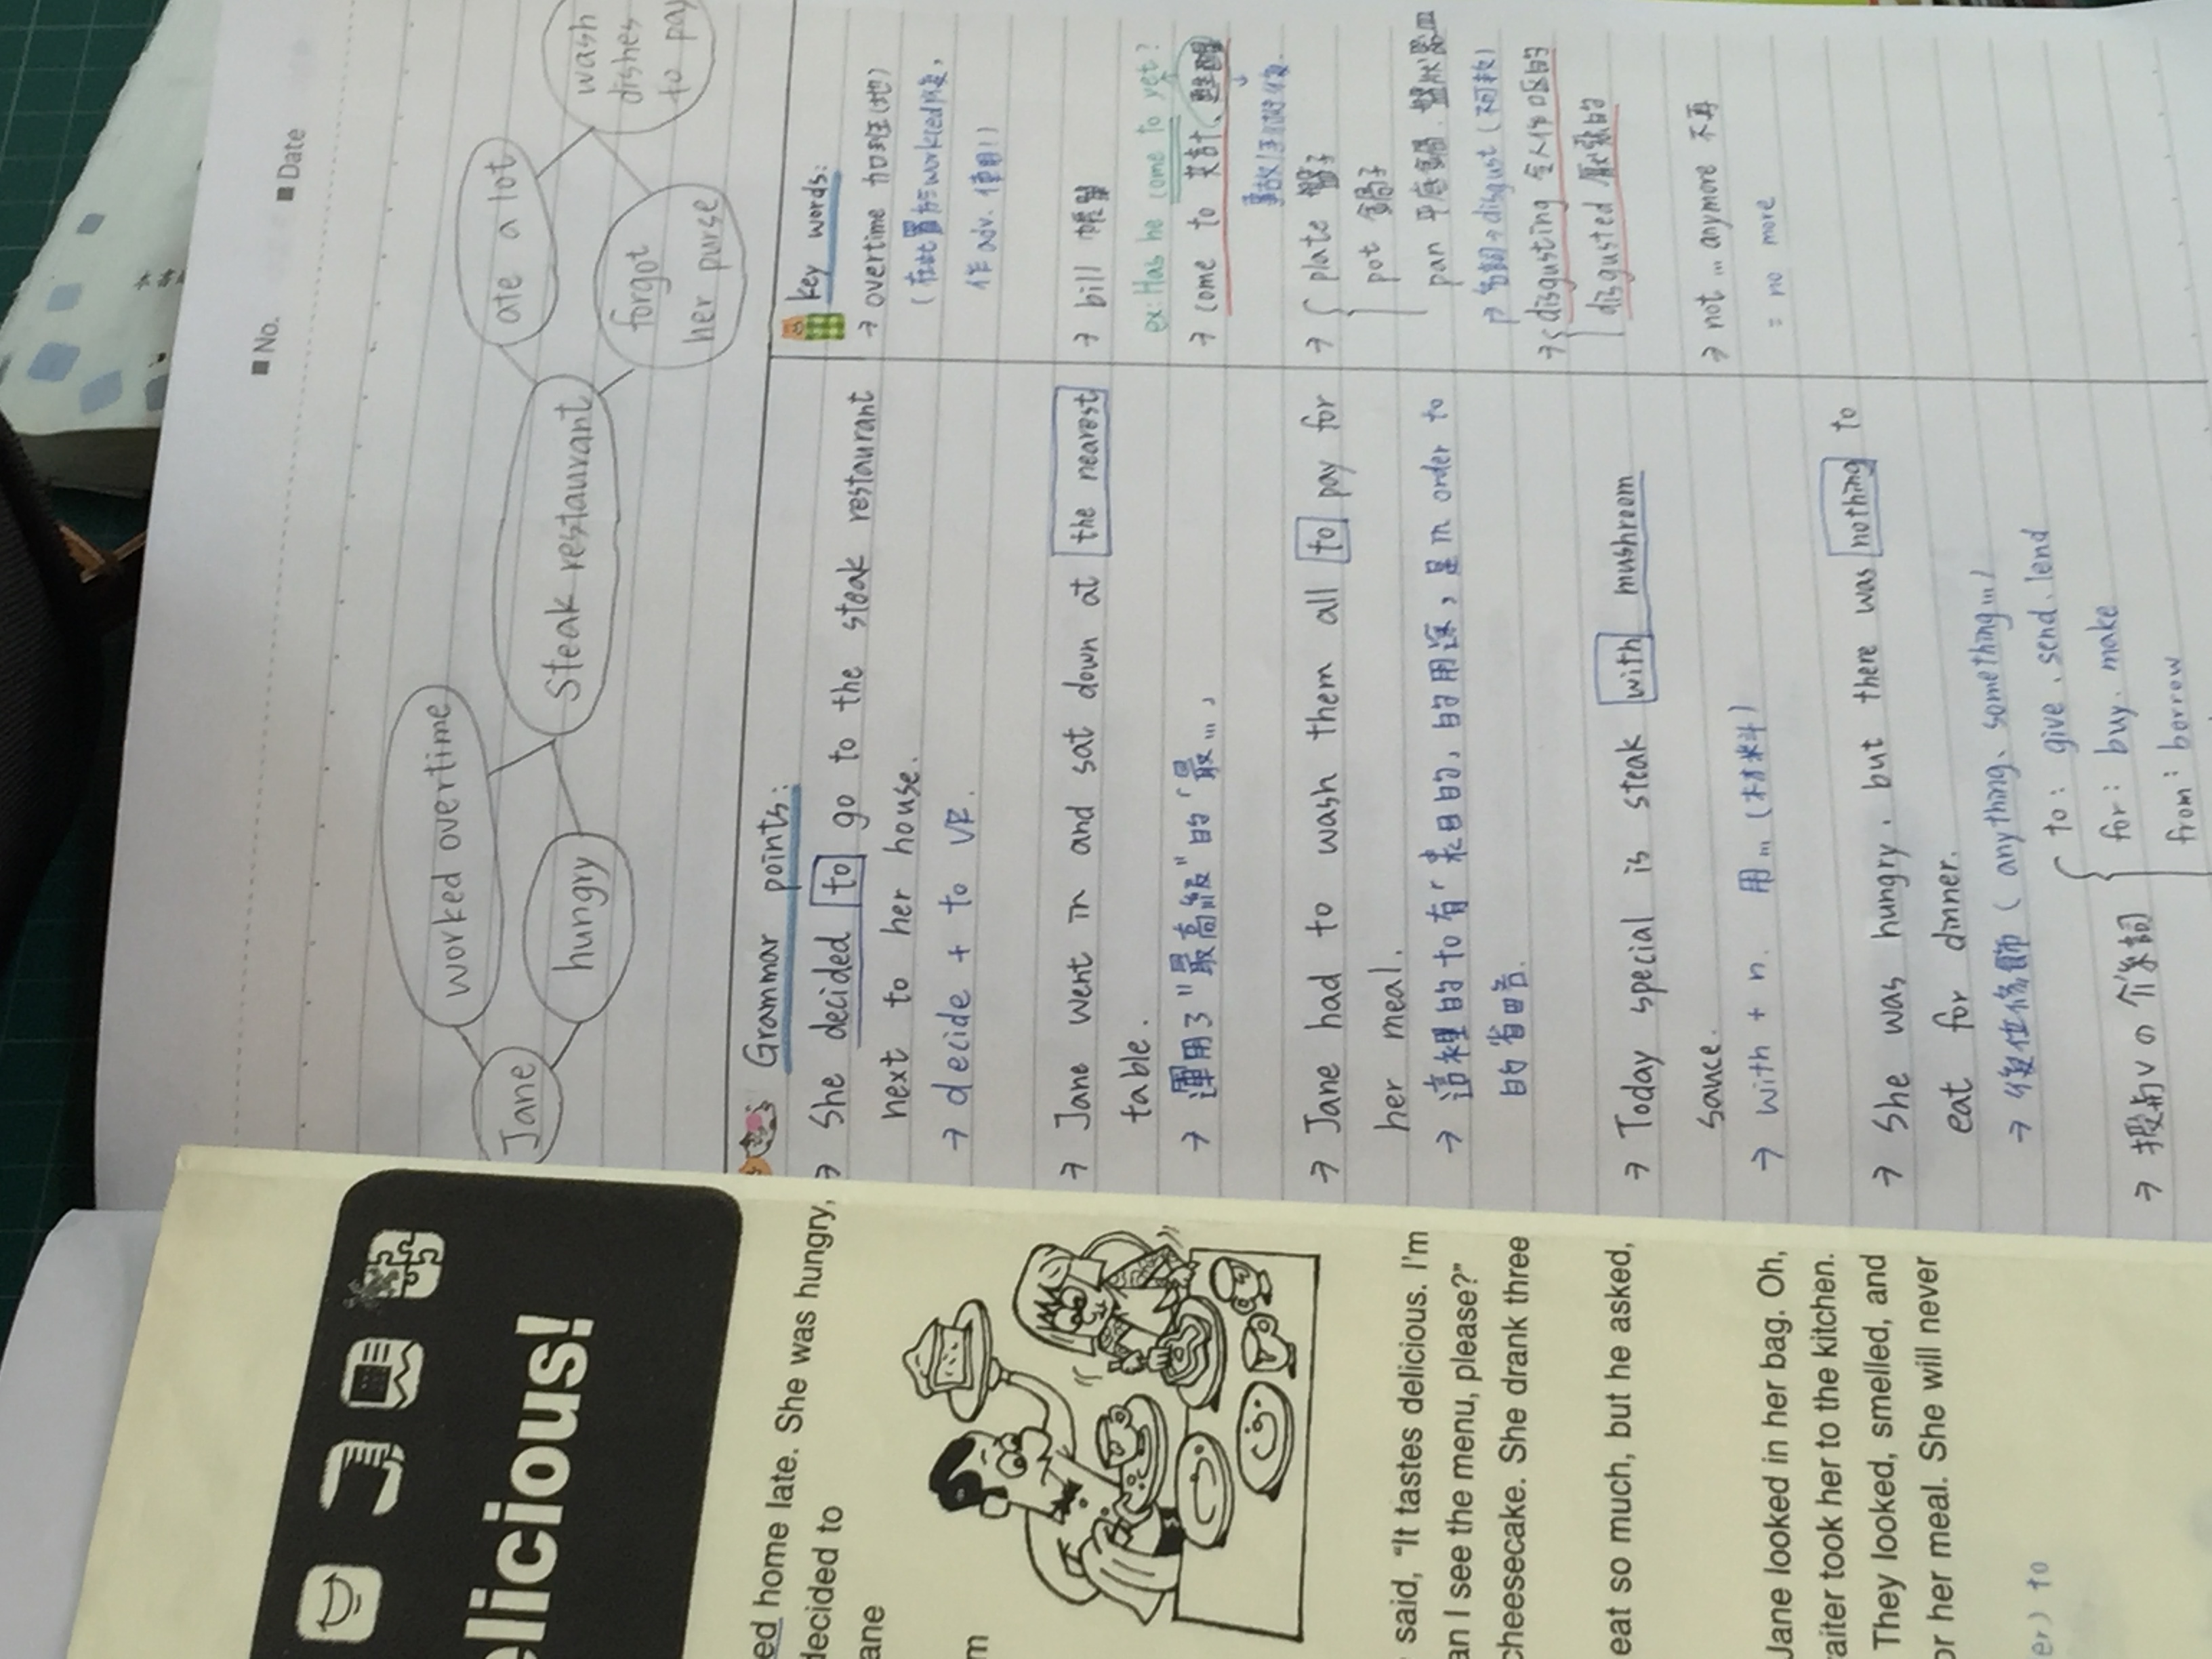 ■ No.
■ Date
Jane
worked overtime
hungry
Steak restaurant
ate a lot
forgot
her purse
wash
dishes
to pay
Grammar points:
→ She decided to go to the steak restaurant
next to her house.
→ decide + to VR.
→ Jane went in and sat down at the nearest
table.
→ 運用了"最高級"的「最…」
→ Jane had to wash them all to pay for
her meal.
→ 這裡的to有「來目的」的用途，是in order to
的省略.
→ Today special is steak with mushroom
sauce.
→ with + n. 用…(材料)
→ She was hungry, but there was nothing to
eat for dinner.
→ 後位修飾 (anything、something…)
→ 授與V の 介系詞
to: give、send、lend
for: buy、make
from: borrow
key words:
→ overtime 加班(地)
(在此置於worked後,
作adv.使用!)
→ bill 帳單
ex: Has he come to yet?
→ come to 共計、甦醒
事故/手術後.
→ plate 盤子
pot 鍋子
pan 平底鍋、盤狀器皿
名詞→disgust (不可數)
→ disgusting 令人作嘔的
disgusted 厭惡的
→ not … anymore 不再
= no more
elicious!
ed home late. She was hungry,
decided to
ane
m
said, "It tastes delicious. I'm
an I see the menu, please?"
cheesecake. She drank three
eat so much, but he asked,
Jane looked in her bag. Oh,
aiter took her to the kitchen.
They looked, smelled, and
or her meal. She will never
er) to